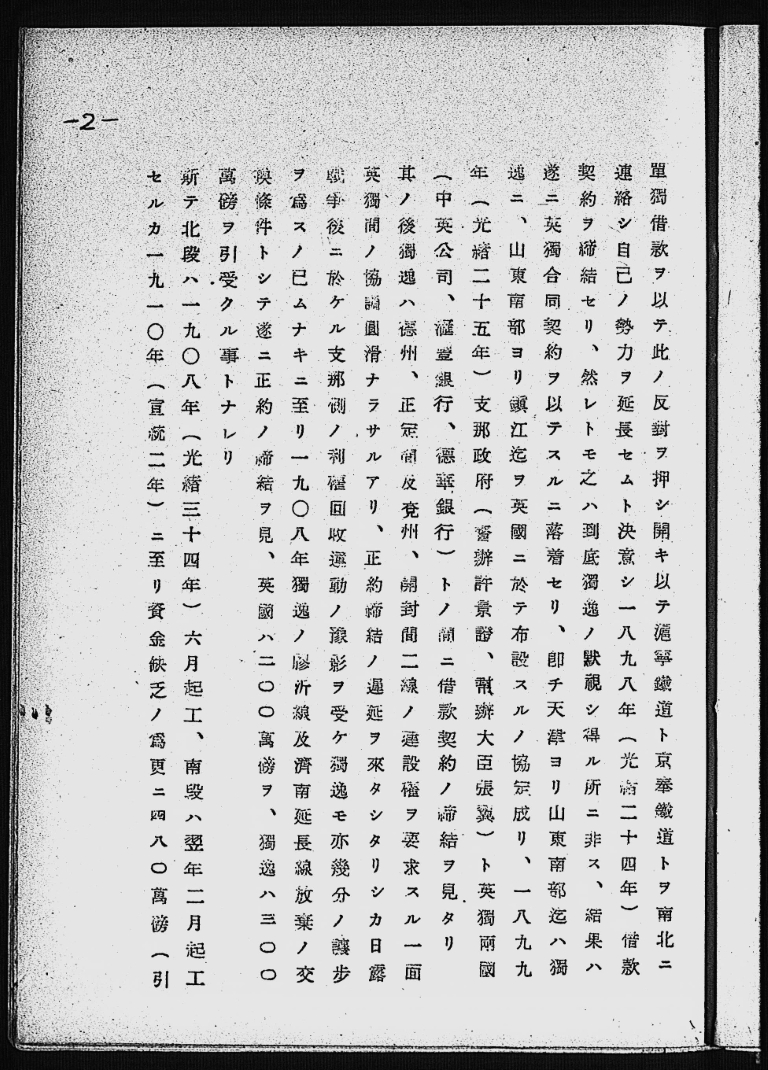 -2-
單獨借款ヲ以テ此ノ反對ヲ押シ開キ以テ滬寧鐵道ト京奉鐵道トヲ南北ニ
連絡シ自己ノ勢力ヲ延長セムト決意シ一八九八年（光緒二十四年）借款
契約ヲ締結セリ、然レトモ之ハ到底獨逸ノ默視シ得ル所ニ非ス、結果ハ
遂ニ英獨合同契約ヲ以テスルニ落着セリ、卽チ天津ヨリ山東南部迄ハ獨
逸ニ、山東南部ヨリ鎭江迄ヲ英國ニ於テ布設スルノ協定成リ、一八九九
年（光緒二十五年）支那政府（督辦許景澄、幫辦大臣張翼）ト英獨兩國
（中英公司、滙豐銀行、德華銀行）トノ間ニ借款契約ノ締結ヲ見タリ
其ノ後獨逸ハ德州、正定間及兗州、開封間二線ノ建設權ヲ要求スル一面
英獨間ノ協調圓滑ナラサルアリ、正約締結ノ遲延ヲ來タシタリシカ日露
戰爭後ニ於ケル支那側ノ利權回收運動ノ影ヲ受ケ獨逸モ亦幾分ノ讓步
ヲ爲スノ已ムナキニ至リ一九〇八年獨逸ノ膠沂線及濟南延長線放棄ノ交
換條件トシテ遂ニ正約ノ締結ヲ見、英國ハ二〇〇萬磅ヲ、獨逸ハ三〇〇
萬磅ヲ引受クル事トナレリ
斯テ北段ハ一九〇八年（光緒三十四年）六月起工、南段ハ翌年二月起工
セルカ一九一〇年（宣統二年）ニ至リ資金缺乏ノ爲更ニ四八〇萬磅（引